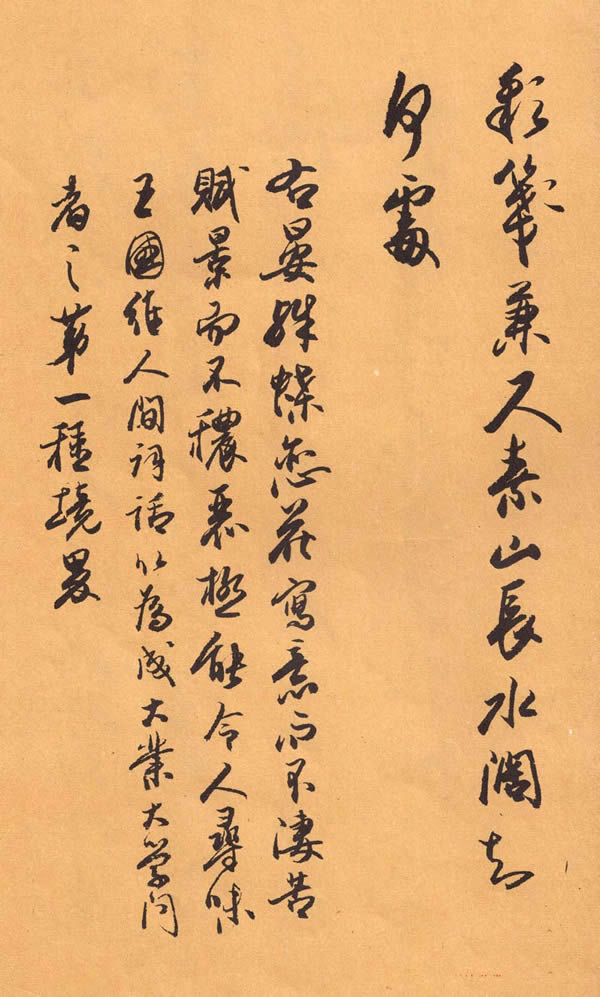 彩箋兼尺素山長水闊知
何處
右晏殊蝶恋花寫意而不淒苦
賦景而不穠麗極能令人尋味
王國維人間詞話以為成大業大学问
者之第一種境界